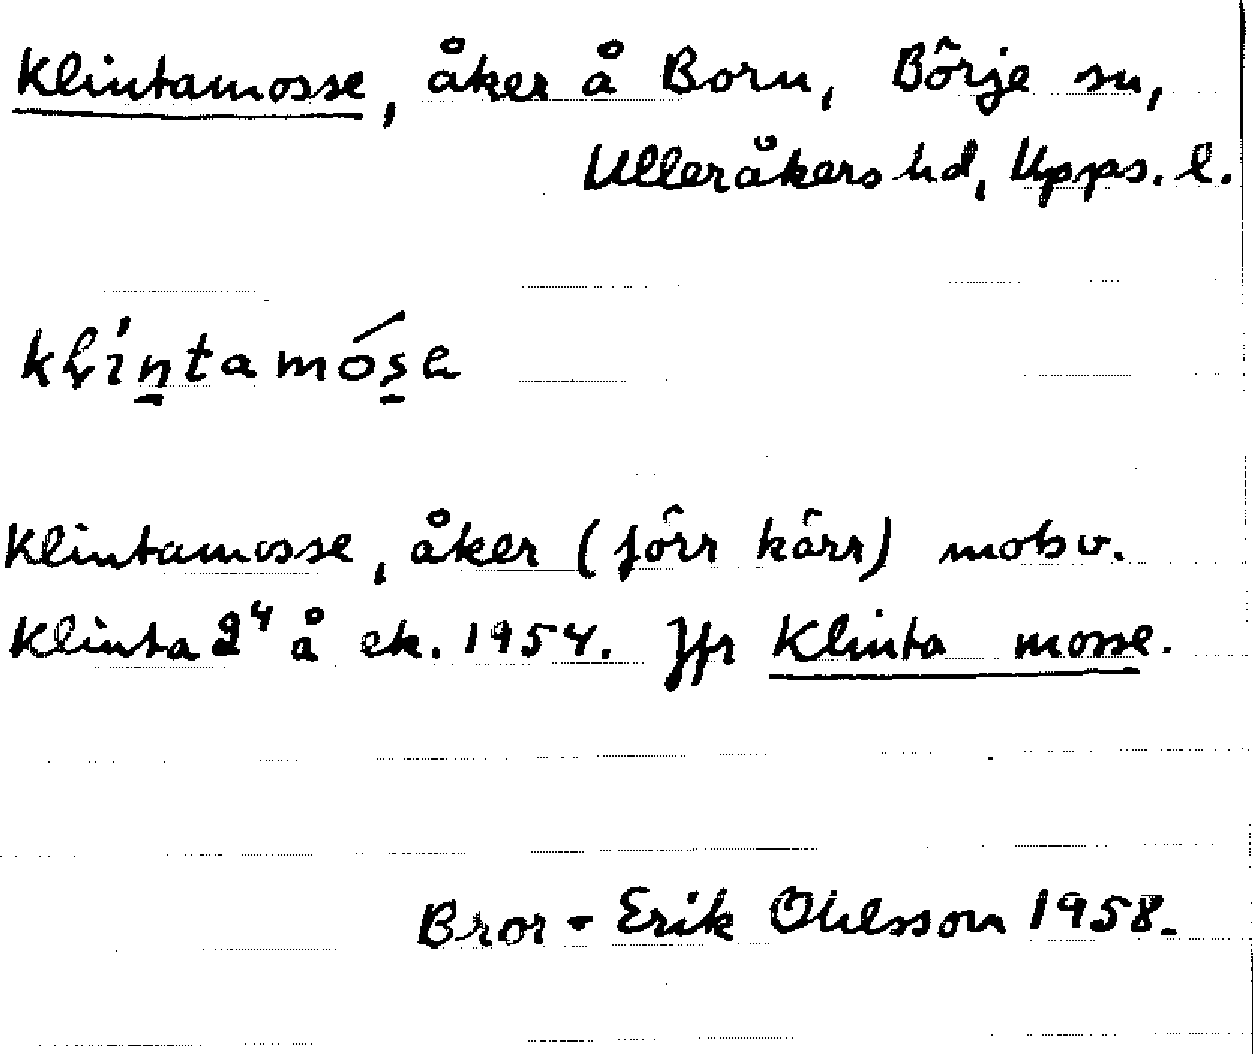 Klintamosse, åker å Born, Börje sn,
Ulleråkers hd, Upps. l.
klíntamóse
Klintamosse, åker (förr kärr) motsv.
Klinta 2⁴ å ek. 1954. Jfr Klinta mosse.
Bror-Erik Ohlsson 1958.